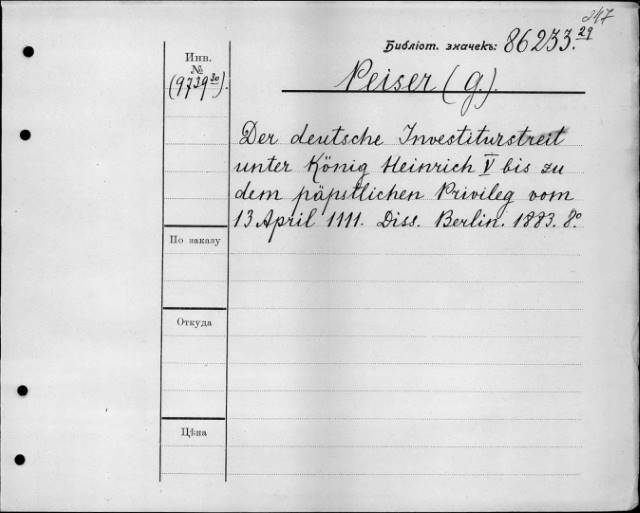 247
Библіот. значекъ: 86233.29
Инв.
№
(9739 30).
Peiser (G.).
Der deutsche Investiturstreit
unter König Heinrich V bis zu
dem päpstlichen Privileg vom
13 April 1111. Diss. Berlin. 1883. 8.º
По заказу
Откуда
Цѣна